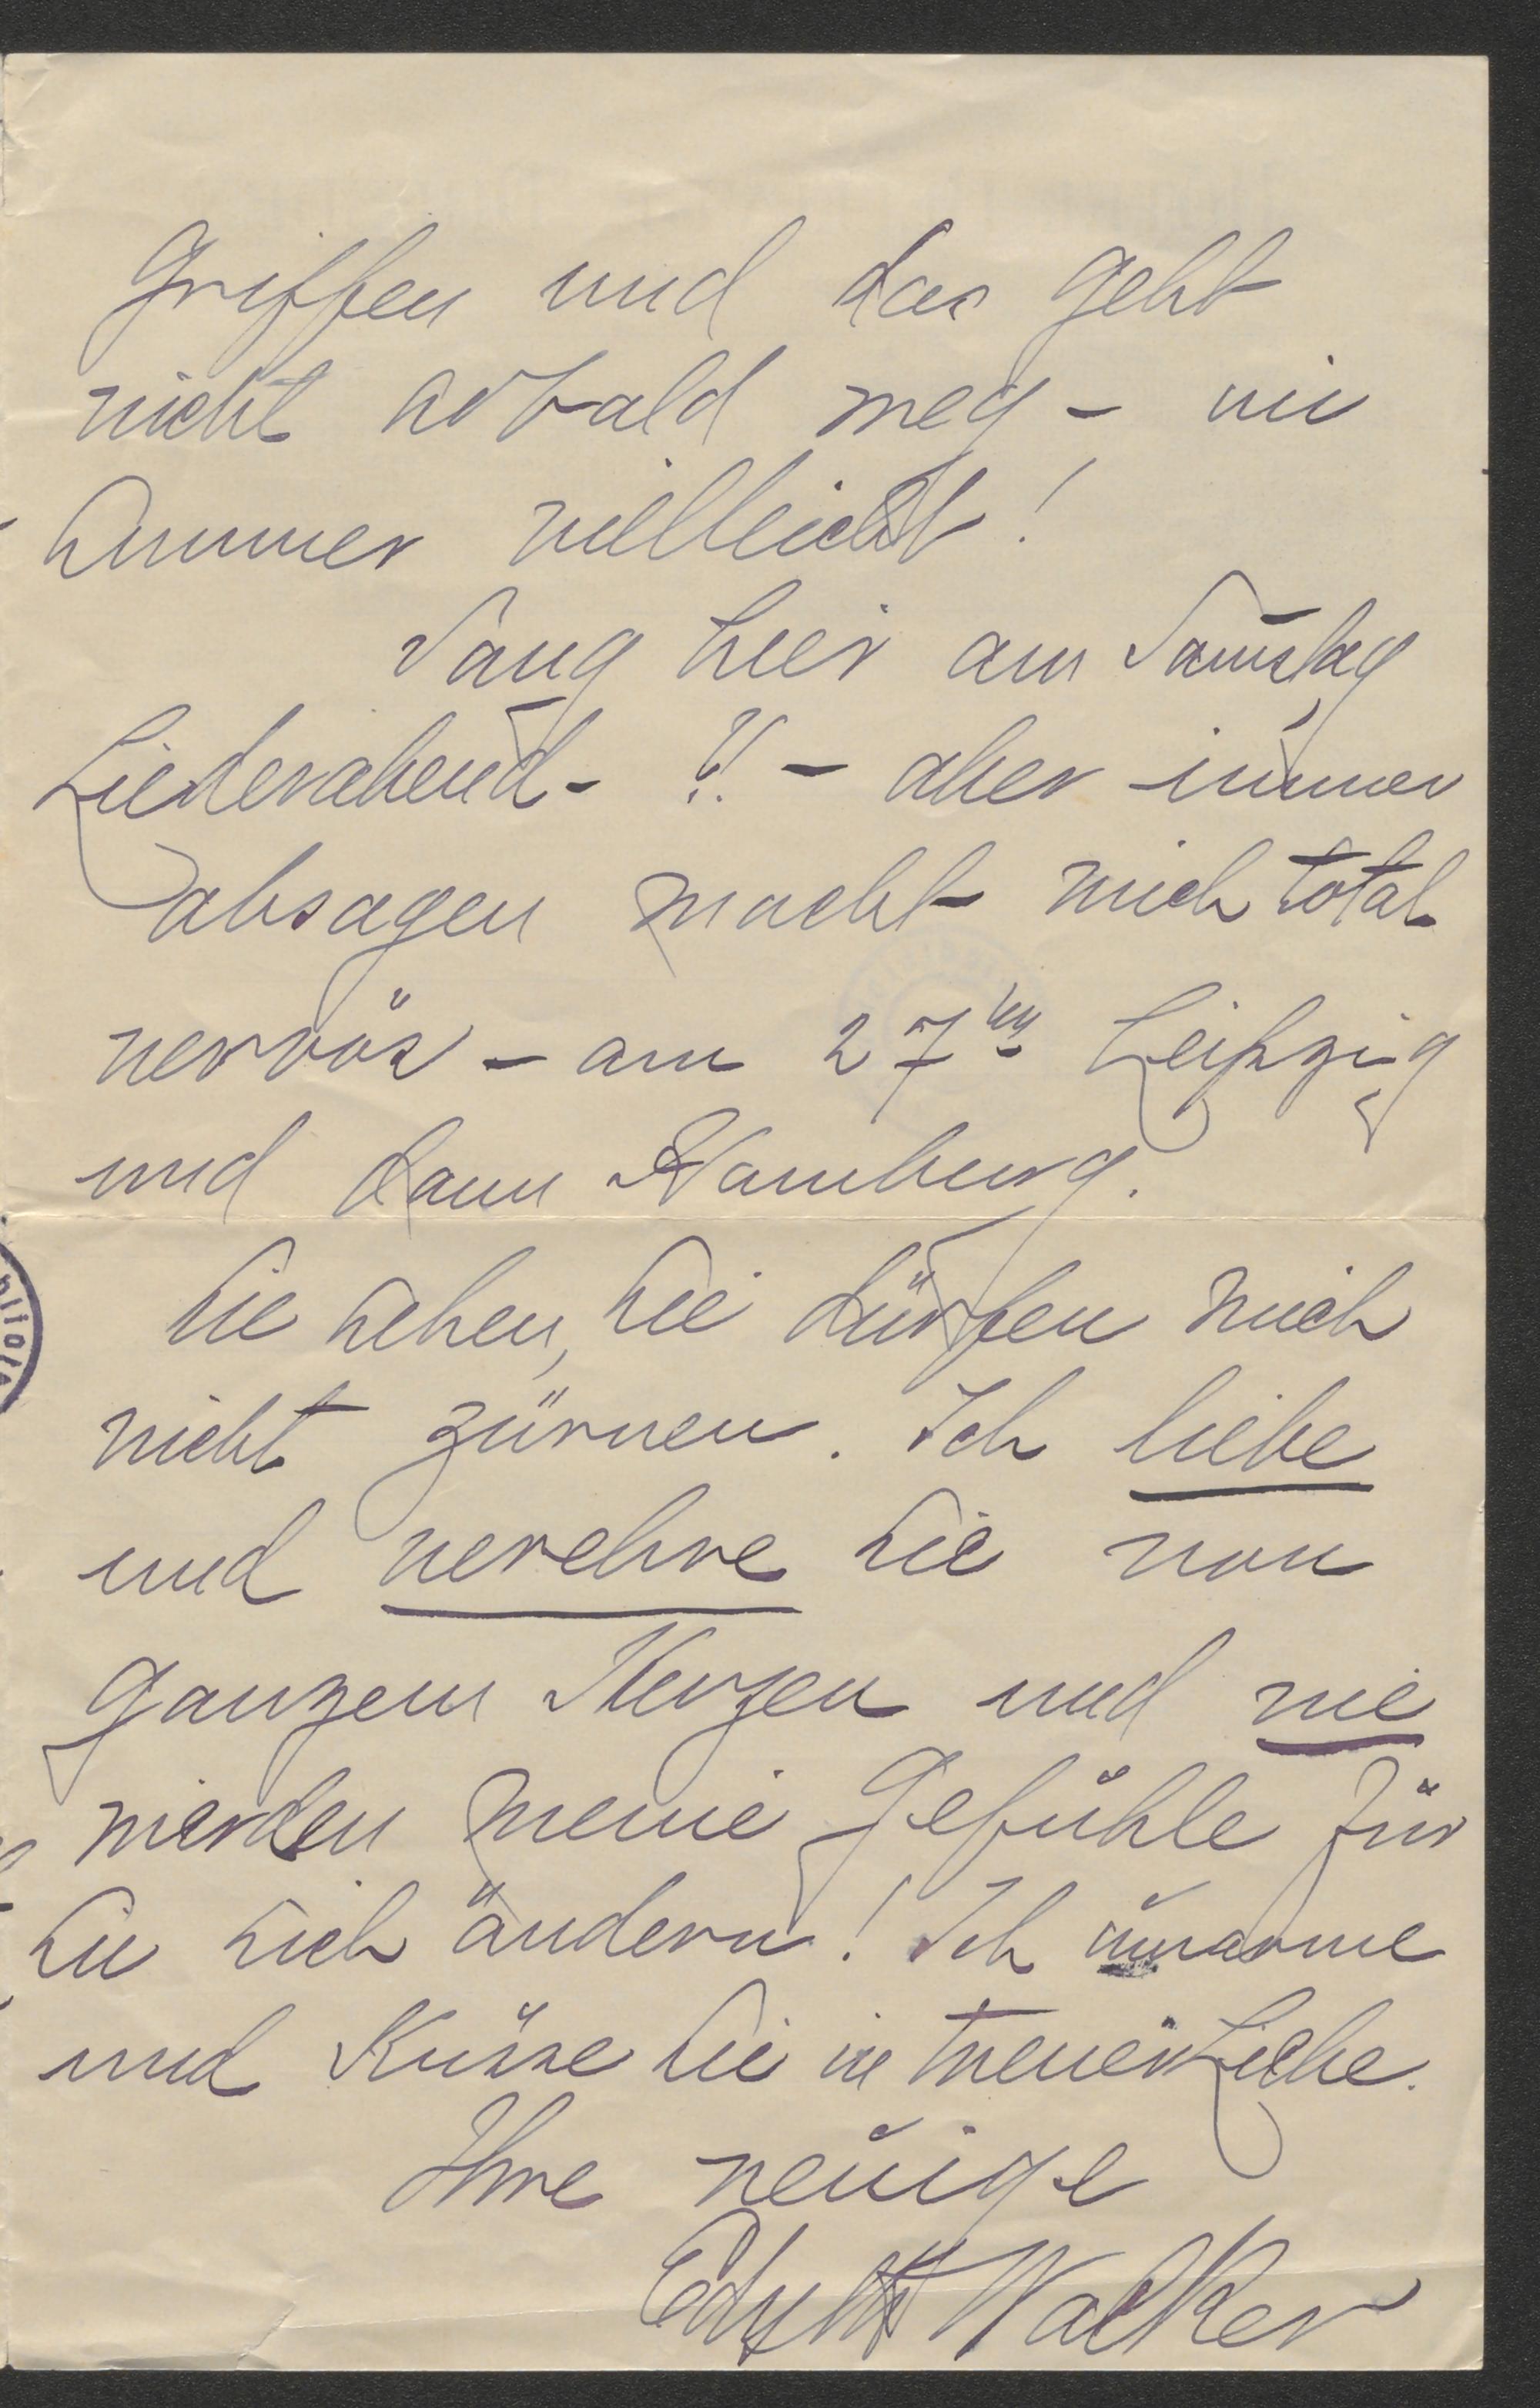 Griffen und das geht
nicht sobald weg - im
Sommer vielleicht!
Sang hier am Samstag
Liederabend - ?! - aber immer
absagen macht mich total
nervös - am 27ten Leipzig
und dann Hamburg.
Sie sehen, Sie dürfen mich
nicht zürnen. Ich liebe
und verehre Sie von
ganzem Herzen und nie
werden meine Gefühle für
Sie sich ändern! Ich umarme
und Küsse Sie in treuer Liebe.
Ihre
Edyth Walker